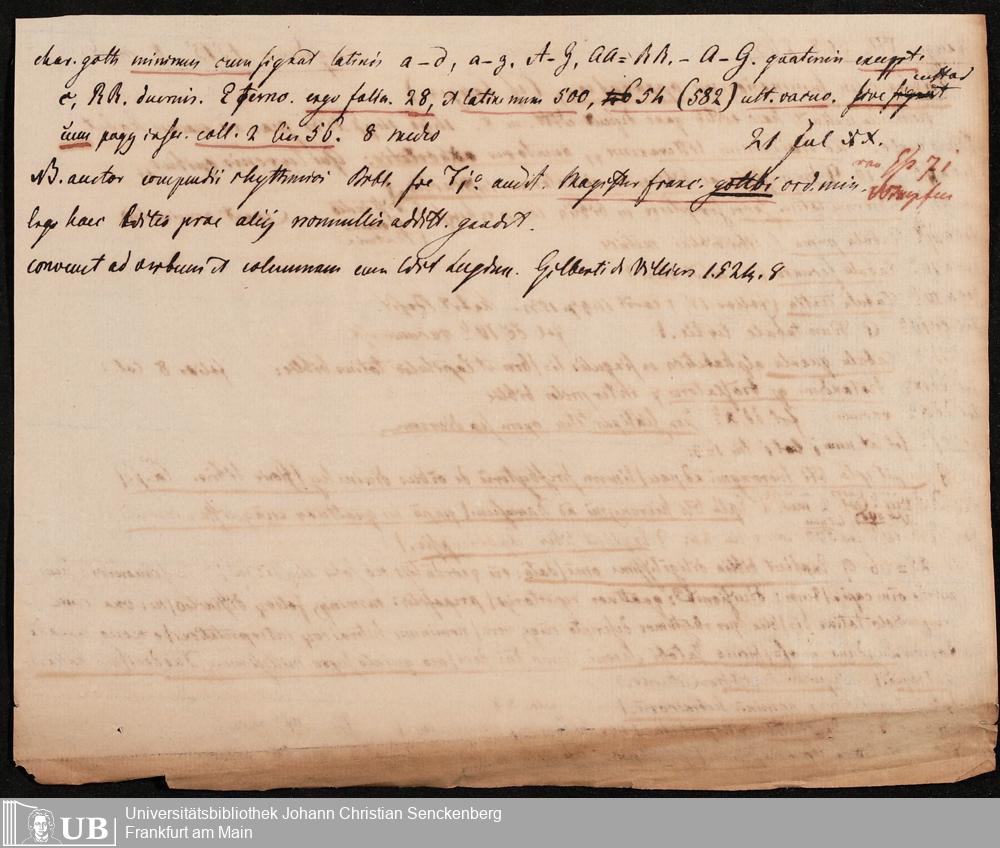 char. goth minimus cum signat latinis a-d, a-z. A-Z, AA=RR. - A-G. quaternis except.
c, RR. duernis. E terno. ergo folia. 28, et latine num 500, 54 (582) ult. vacuo. sive signat custod
num pagg inser. coll. 2 lin 56. 8 medio 21 Jul XX.
NB. auctor compendii rhythmici Bibl. fre audit. Magister franc. gotthi ord. min.
Ergo haec Editio prae aliis nonnullis additt. gaudet.
convenit ad verbum et columnam cum Edit Lugdun. Gilberti de Villiers 1524. 8
UB
Universitätsbibliothek Johann Christian Senckenberg
Frankfurt am Main